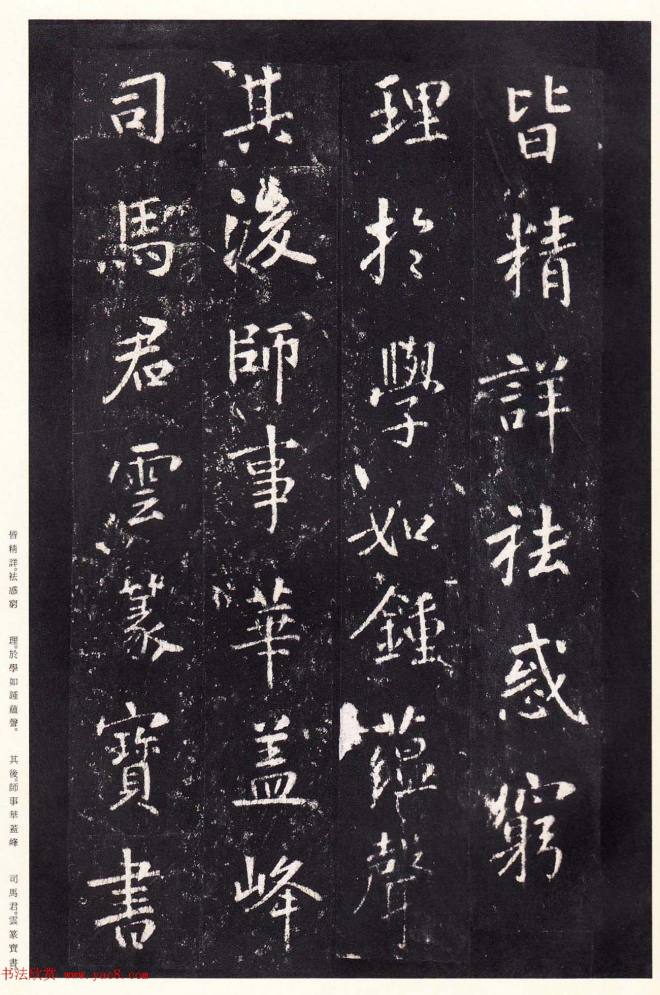 皆精詳祛惑窮
理於學如鍾蘊聲
其後師事華盖峰
司馬君雲篆寶書
皆精詳。祛惑窮 理。於學如鍾蘊聲。 其後。師事華蓋峰 司馬君。雲篆寶書
书法欣赏 www.yac8.com